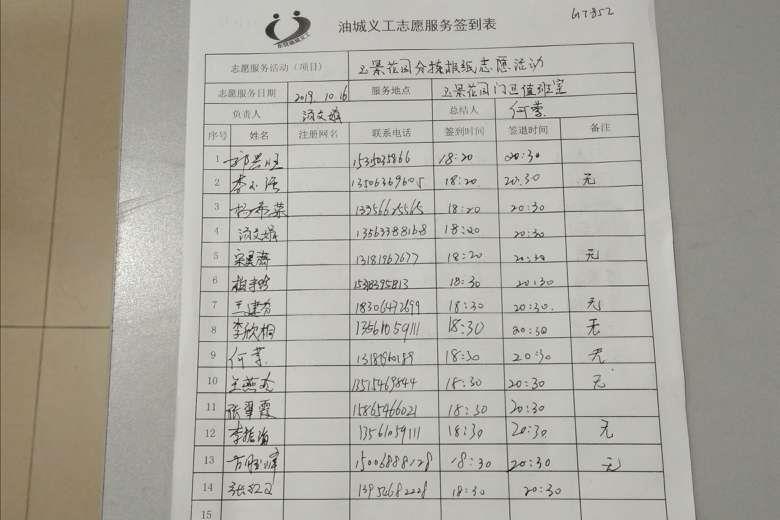 GT352
油城义工志愿服务签到表
志愿服务活动（项目） 玉景花园分拣报纸志愿活动
志愿服务日期 2019.10.16 服务地点 玉景花园门卫值班室
负责人 汤文娟 总结人 何蒙
序号 姓名 注册网名 联系电话 签到时间 签退时间 备注
1 18:20 20:30
2 李小强 13506369605 18:20 20:30 无
3 杨希荣 13356625565 18:20 20:30
4 汤文娟 13563388168 18:20 20:30
5 13181967677 18:20 20:30 无
6 18:30 20:30
7 王建芬 18306472699 18:30 20:30 无
8 李欣桐 13561059111 18:30 20:30 无
9 何蒙 18:30 20:30 无
10 王燕 18:30 20:30 无
11 张翠霞 15865466021 18:30 20:30
12 13561059111 18:30 20:30 无
13 15006888128 18:30 20:30 无
14 13954682228 18:30 20:30
15